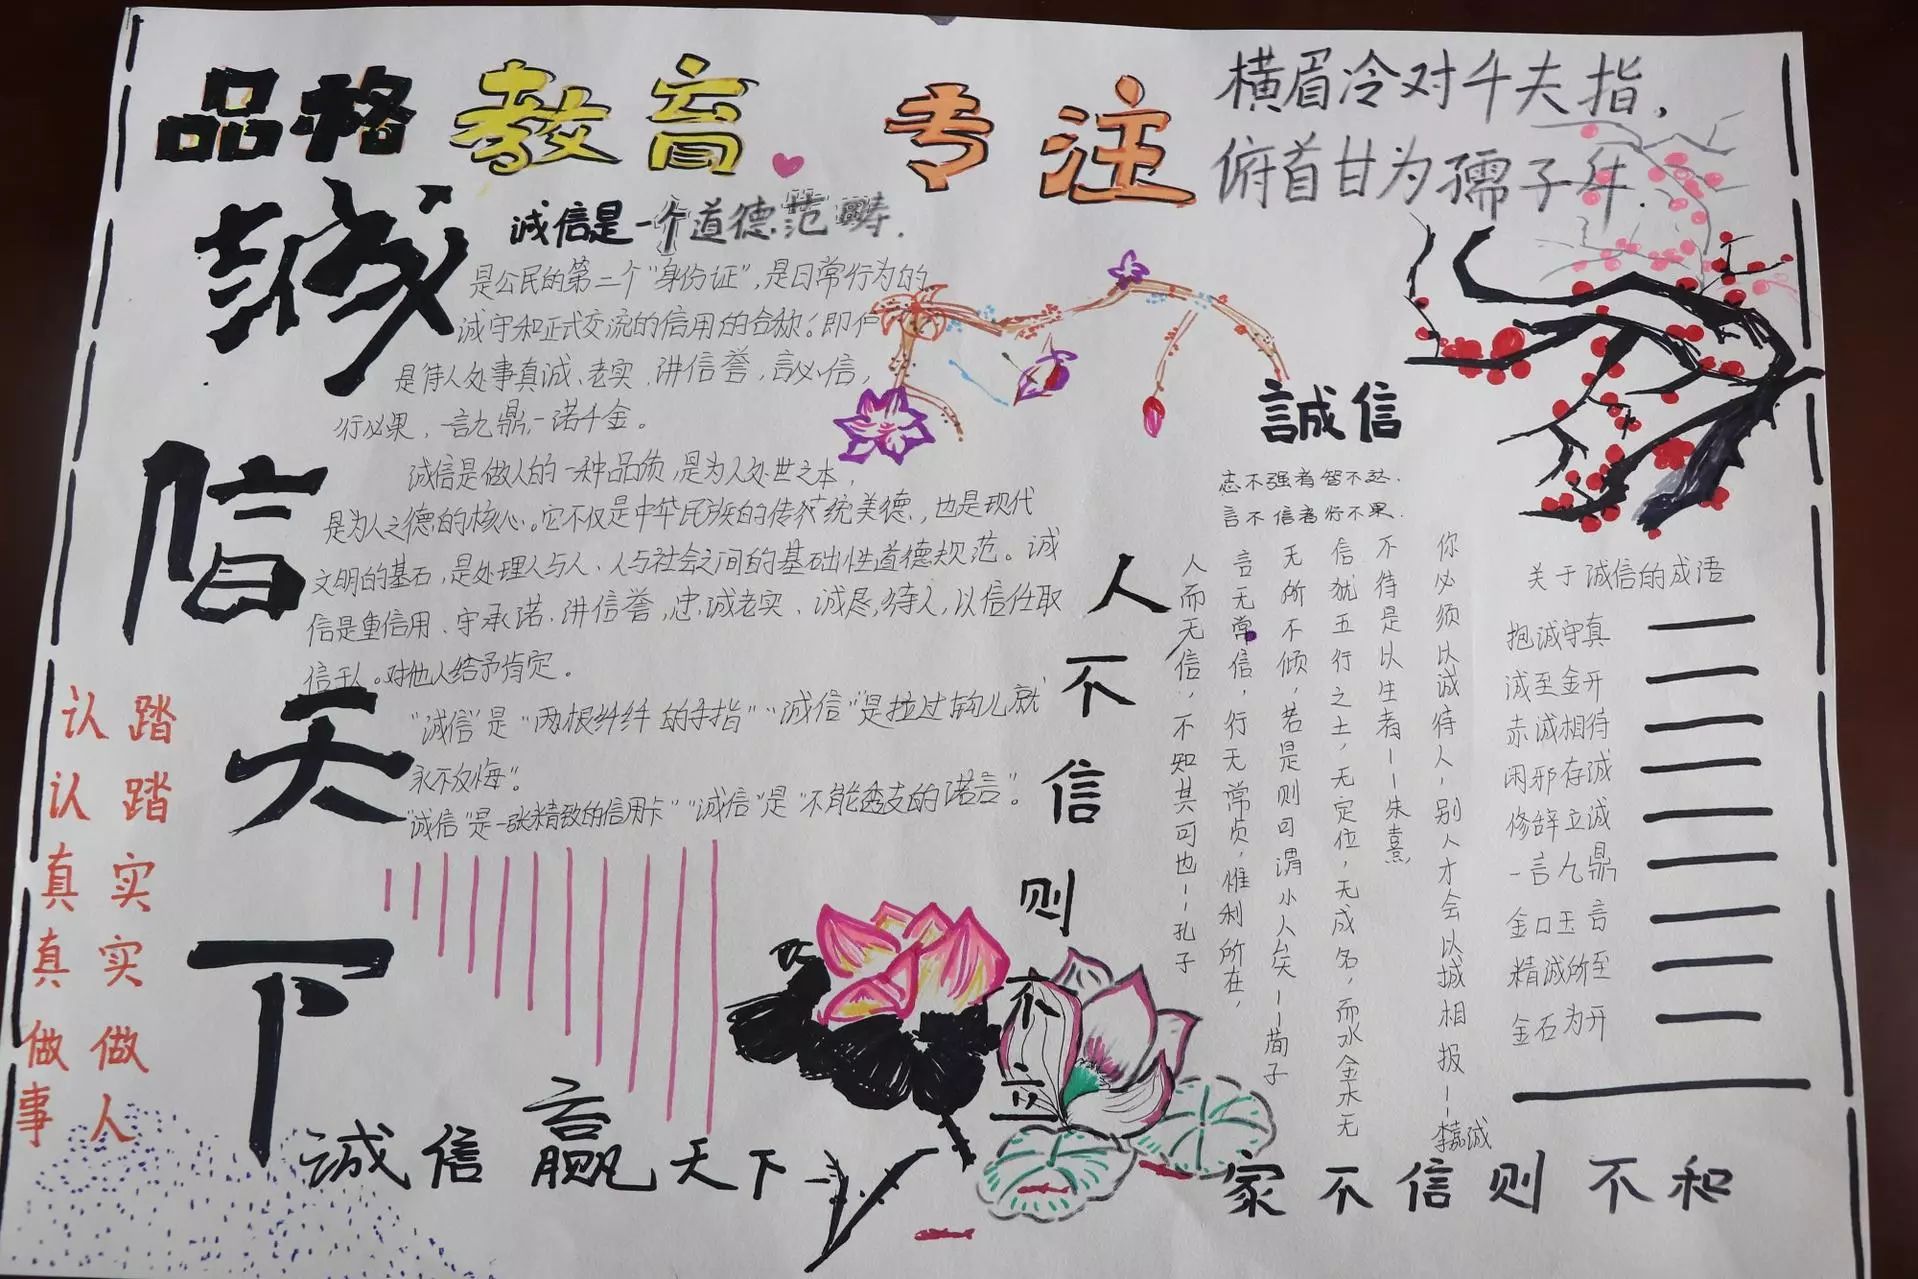 品格 教育 专注
横眉冷对千夫指，
俯首甘为孺子牛.
诚信天下
诚信是一个道德范畴.
是公民的第二个"身份证"，是日常行为的
诚守和正式交流的信用的合称。即
是待人处事真诚、老实、讲信誉，言必信，
行必果，一言九鼎，一诺千金。
诚信是做人的一种品质，是为人处世之本，
是为人之德的核心。它不仅是中华民族的传统美德，也是现代
文明的基石，是处理人与人、人与社会之间的基础性道德规范。诚
信是重信用、守承诺、讲信誉，忠诚老实、诚恳待人，以信任取
信于人。对他人给予肯定。
"诚信"是"两根纤纤的手指""诚信"是拉过的钩儿就
永不反悔"。
"诚信"是一张精致的信用卡""诚信"是"不能透支的诺言"。
踏踏实实做人
认认真真做事
誠信
志不强者智不达.
言不信者行不果.
你必须以诚待人，别人才会以城相报——李嘉诚
不待是以生者——朱熹
信犹五行之土，无定位，无成名，而水金木无
无所不倾，若是则可谓小人矣——荀子
言无常信，行无常贞，惟利所在，
人而无信，不知其可也——孔子
关于诚信的成语
抱诚守真
诚至金开
赤诚相待
闲邪存诚
修辞立诚
一言九鼎
金口玉言
精诚所至
金石为开
人不信则不立
诚信赢天下
家不信则不和